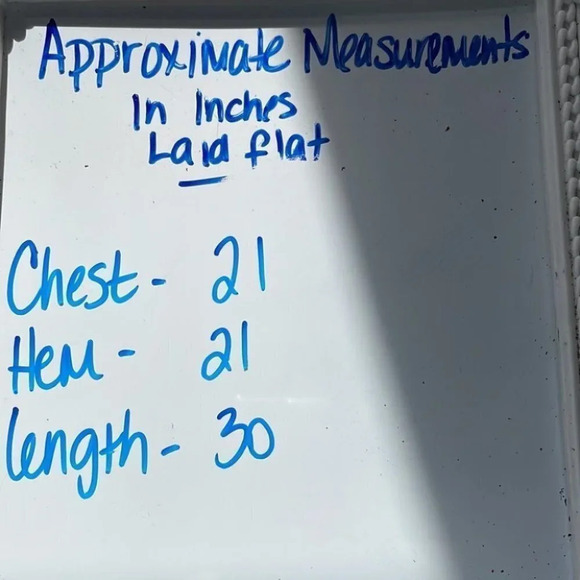 Approximate Measurements
In Inches
Laid flat
Chest - 21
Hem - 21
length - 30